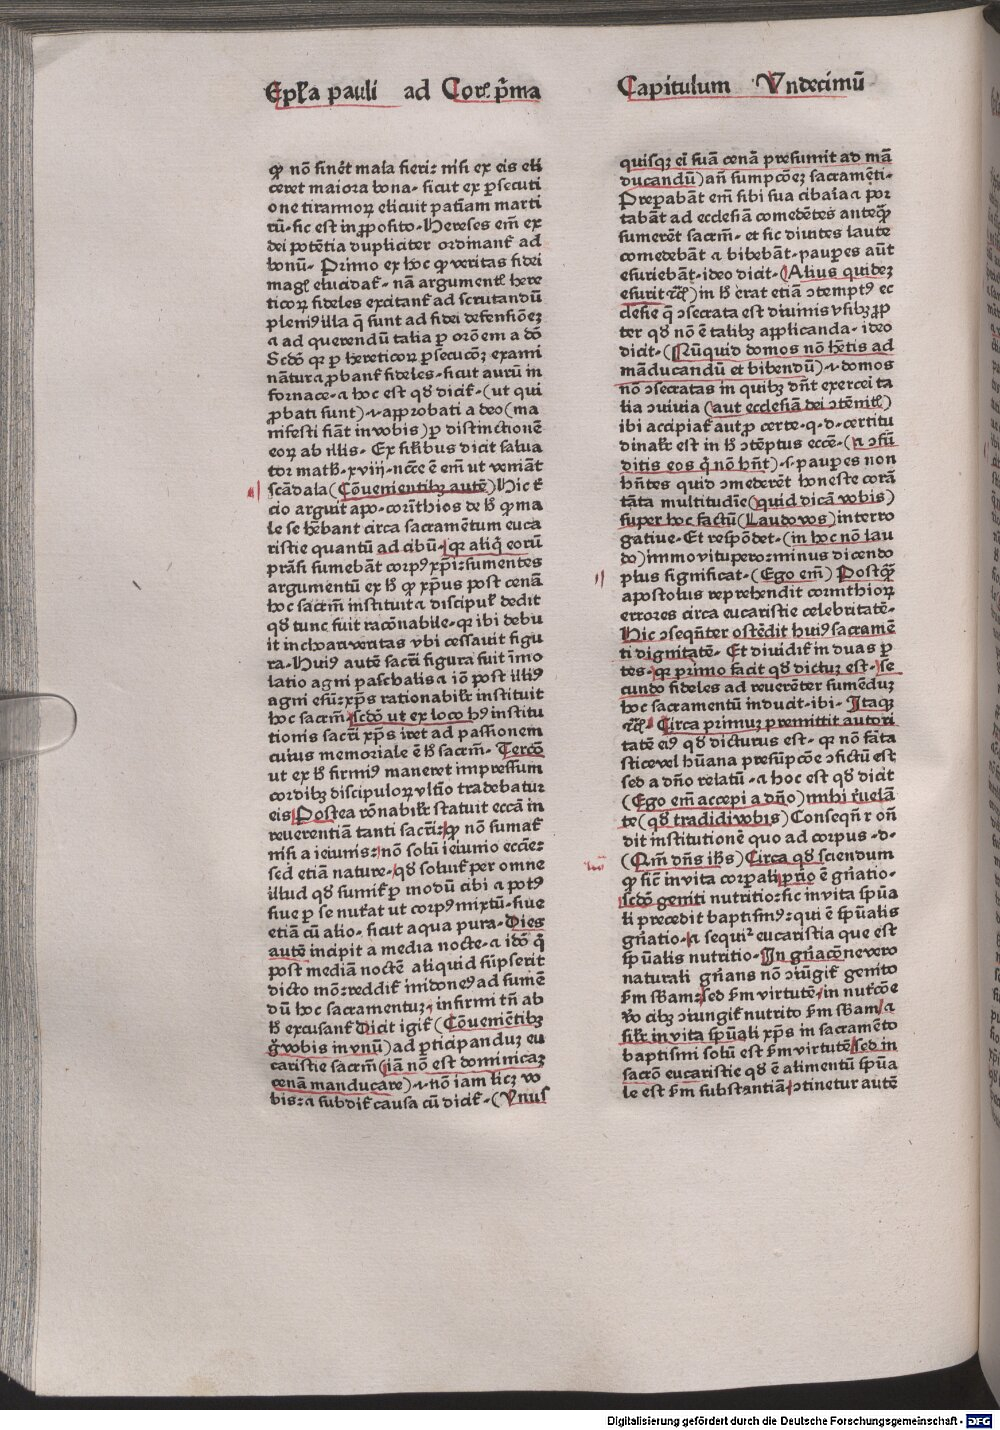 Epl'a pauli ad Cor. p̄ma
Capitulum Vndecimū
ꝙ nō sineret mala fieri: nisi ex eis eli
ceret maiora bona· sicut ex ꝑsecuti
one tirannorꝝ elicuit patiam marti
rū· sic est in ꝓposito· Hereses em̄ ex
dei potētia dupliciter ordinant̄ ad
bonū· Primo ex hoc ꝙ veritas fidei
magꝭ elucidat̄· nā argumentꝭ here
ticorꝝ fideles excitant̄ ad scrutandū
pleniꝰ illa q̄ sunt ad fidei defensiōeꝫ
⁊ ad querendū talia ꝑ orōem a dō
Scd̄o qꝛ ꝑ hereticorꝝ ꝑsecucōꝫ exami
nātur ⁊ ꝓbant̄ fideles· sicut aurū in
fornace· ⁊ hoc est qd̄ dicit̄· (ut qui
ꝓbati sunt) ·i· approbati a deo (ma
nifesti fiāt in vobis) ꝑ distinctionē
eorꝝ ab illis· Ex silibus dicit salua
tor math· xviij· ncc̄e ē em̄ ut veniāt
scādala (Cōuenientibꝫ autē) Hic t̄
cio arguit apo· corīthios de h̄ ꝙ ma
le se hēbant circa sacramētum euca
ristie quantū ad cibū· qꝛ aliq̄ eorū
prāsi sumebāt corpꝰ xp̄i: sumentes
argumentū ex h̄ ꝙ xp̄us post cenā
hoc sacrm̄ instituit ⁊ discipulꝭ dedit
qd̄ tunc fuit racōnabile· qꝛ ibi debu
it inchoari veritas vbi cessauit figu
ra· Huiꝰ autē sacri figura fuit īmo
latio agni paschalis ⁊ iō post illiꝰ
agni esū: xp̄s rationabilr̄ instituit
hoc sacrm̄· scd̄o ut ex loco hꝰ institu
tionis sacri xp̄s iret ad passionem
cuius memoriale ē h̄ sacrm̄· Tercō
ut ex h̄ firmiꝰ maneret impressum
cordibꝫ discipulorꝝ vltīo tradebatur
eis· Postea rōnabilr̄ statuit eccā in
reuerentiā tanti sacri: ꝙ nō sumat̄
nisi a ieiunis: nō solū ieiunio eccie:
sed etiā nature· qd̄ soluit̄ per omne
illud qd̄ sumit̄ ꝑ modū cibi ⁊ potꝰ
siue ꝑ se nut̄at ut corpꝰ mixtū· siue
etiā cū alio· sicut aqua pura· Dies
autē incipit a media nocte· ⁊ idō q̄
post mediā noctē aliquid sūpserit
dicto mō: reddit̄ inidoneꝰ ad sumē
dū hoc sacramentuꝫ, infirmi tn̄ ab
h̄ excusant̄ Dicit igit̄ (Cōuenietibꝫ
g̊ vobis in vnū) ad ꝑticipanduꝫ eu
caristie sacrm̄ (iā nō est dominicaꝫ
cenā manducare) ·i· nō iam licꝫ vo
bis: ⁊ subdit̄ causa cū dicit̄· (Vnus
quisqꝫ ei suā cenā presumit ad mā
ducandū) an̄ sumpcōeꝫ sacramēti·
Preparabāt em̄ sibi sua cibaīa ⁊ por
tabāt ad ecclesiā comedētes anteq̄ꝫ
sumerēt sacrm̄· et sic diuites laute
comedebāt ⁊ bibebāt· pauꝑes aūt
esuriebāt· ideo dicit· (Alius quideꝫ
esurit ⁊cꝭ) in h̄ erat etiā ꝯtemptꝰ ec
clesie q̄ ꝯsecrata est diuinis vsibꝫ ꝓp
ter qd̄ nō ē talibꝫ applicanda· ideo
dicit· (Nūquid domos nō hētis ad
māducandū et bibendū) ·i· domos
nō ꝯsecratas in quibꝫ dn̄t exerceri ta
lia ꝯuiuia (aut ecclesiā dei ꝯtēnitꝭ)
ibi accipiat̄ aut ꝓ certe· q· d· certitu
dinalr̄ est in h̄ ꝯtēptus eccē· (⁊ ꝯfū
ditis eos q̄ nō hn̄t) ·s· pauꝑes non
hn̄tes quid ꝯmederēt honeste corā
tāta multitudīe (quid dicā vobis)
super hoc factū (Laudo vos) interro
gatiue· Et respōdet· (in hoc nō lau
do) immo vitupero: minus dicendo
plus significat· (Ego em̄) Postq̄ꝫ
apostolus reprehendit corinthiorꝝ
errores circa eucaristie celebritatē·
Hic ꝯseqn̄ter ostēdit huiꝰ sacramē
ti dignitatē· Et diuidit̄ in duas ꝑ
tes· qꝛ primo facit qd̄ dictuꝫ est· se
cundo fideles ad reuerēter sumēduꝫ
hoc sacramentū inducit· ibi· Itaqꝫ
⁊cꝭ· Circa primuꝫ premittit autori
tatē eiꝰ qd̄ dicturus est· qꝛ nō fāta
stice vel hūana presūpcōe ꝯfictū est
sed a dn̄o relatū· ⁊ hoc est qd̄ dicit
(Ego em̄ accepi a dn̄o) mihi r̄uelā
te (qd̄ tradidi vobis) Conseqn̄r on̄
dit institutionē quo ad corpus· d·
(Qm̄ dn̄s ihs) Circa qd̄ sciendum
ꝙ sic̄ in vita corpali prīo ē gn̄atio·
scd̄o geniti nutritio: sic in vita sp̄ua
li precedit baptismꝰ: qui ē sp̄ualis
gn̄atio· ⁊ sequit̄ eucaristia que est
sp̄ualis nutritio· In gn̄acōne vero
naturali gn̄ans nō ꝯiūgit̄ genito
s̄m sb̄am: sed s̄m virtutē· in nut̄cōe
v̄o cibꝫ ꝯiungit̄ nutrito s̄m sb̄am/ ⁊
silr̄ in vita sp̄uali xp̄s in sacramēto
baptismi solū est s̄m virtutē/ sed in
sacrō eucaristie qd̄ ē alimentū sp̄ua
le est s̄m substantiā/ ꝯtinetur autē
Digitalisierung gefördert durch die Deutsche Forschungsgemeinschaft - DFG